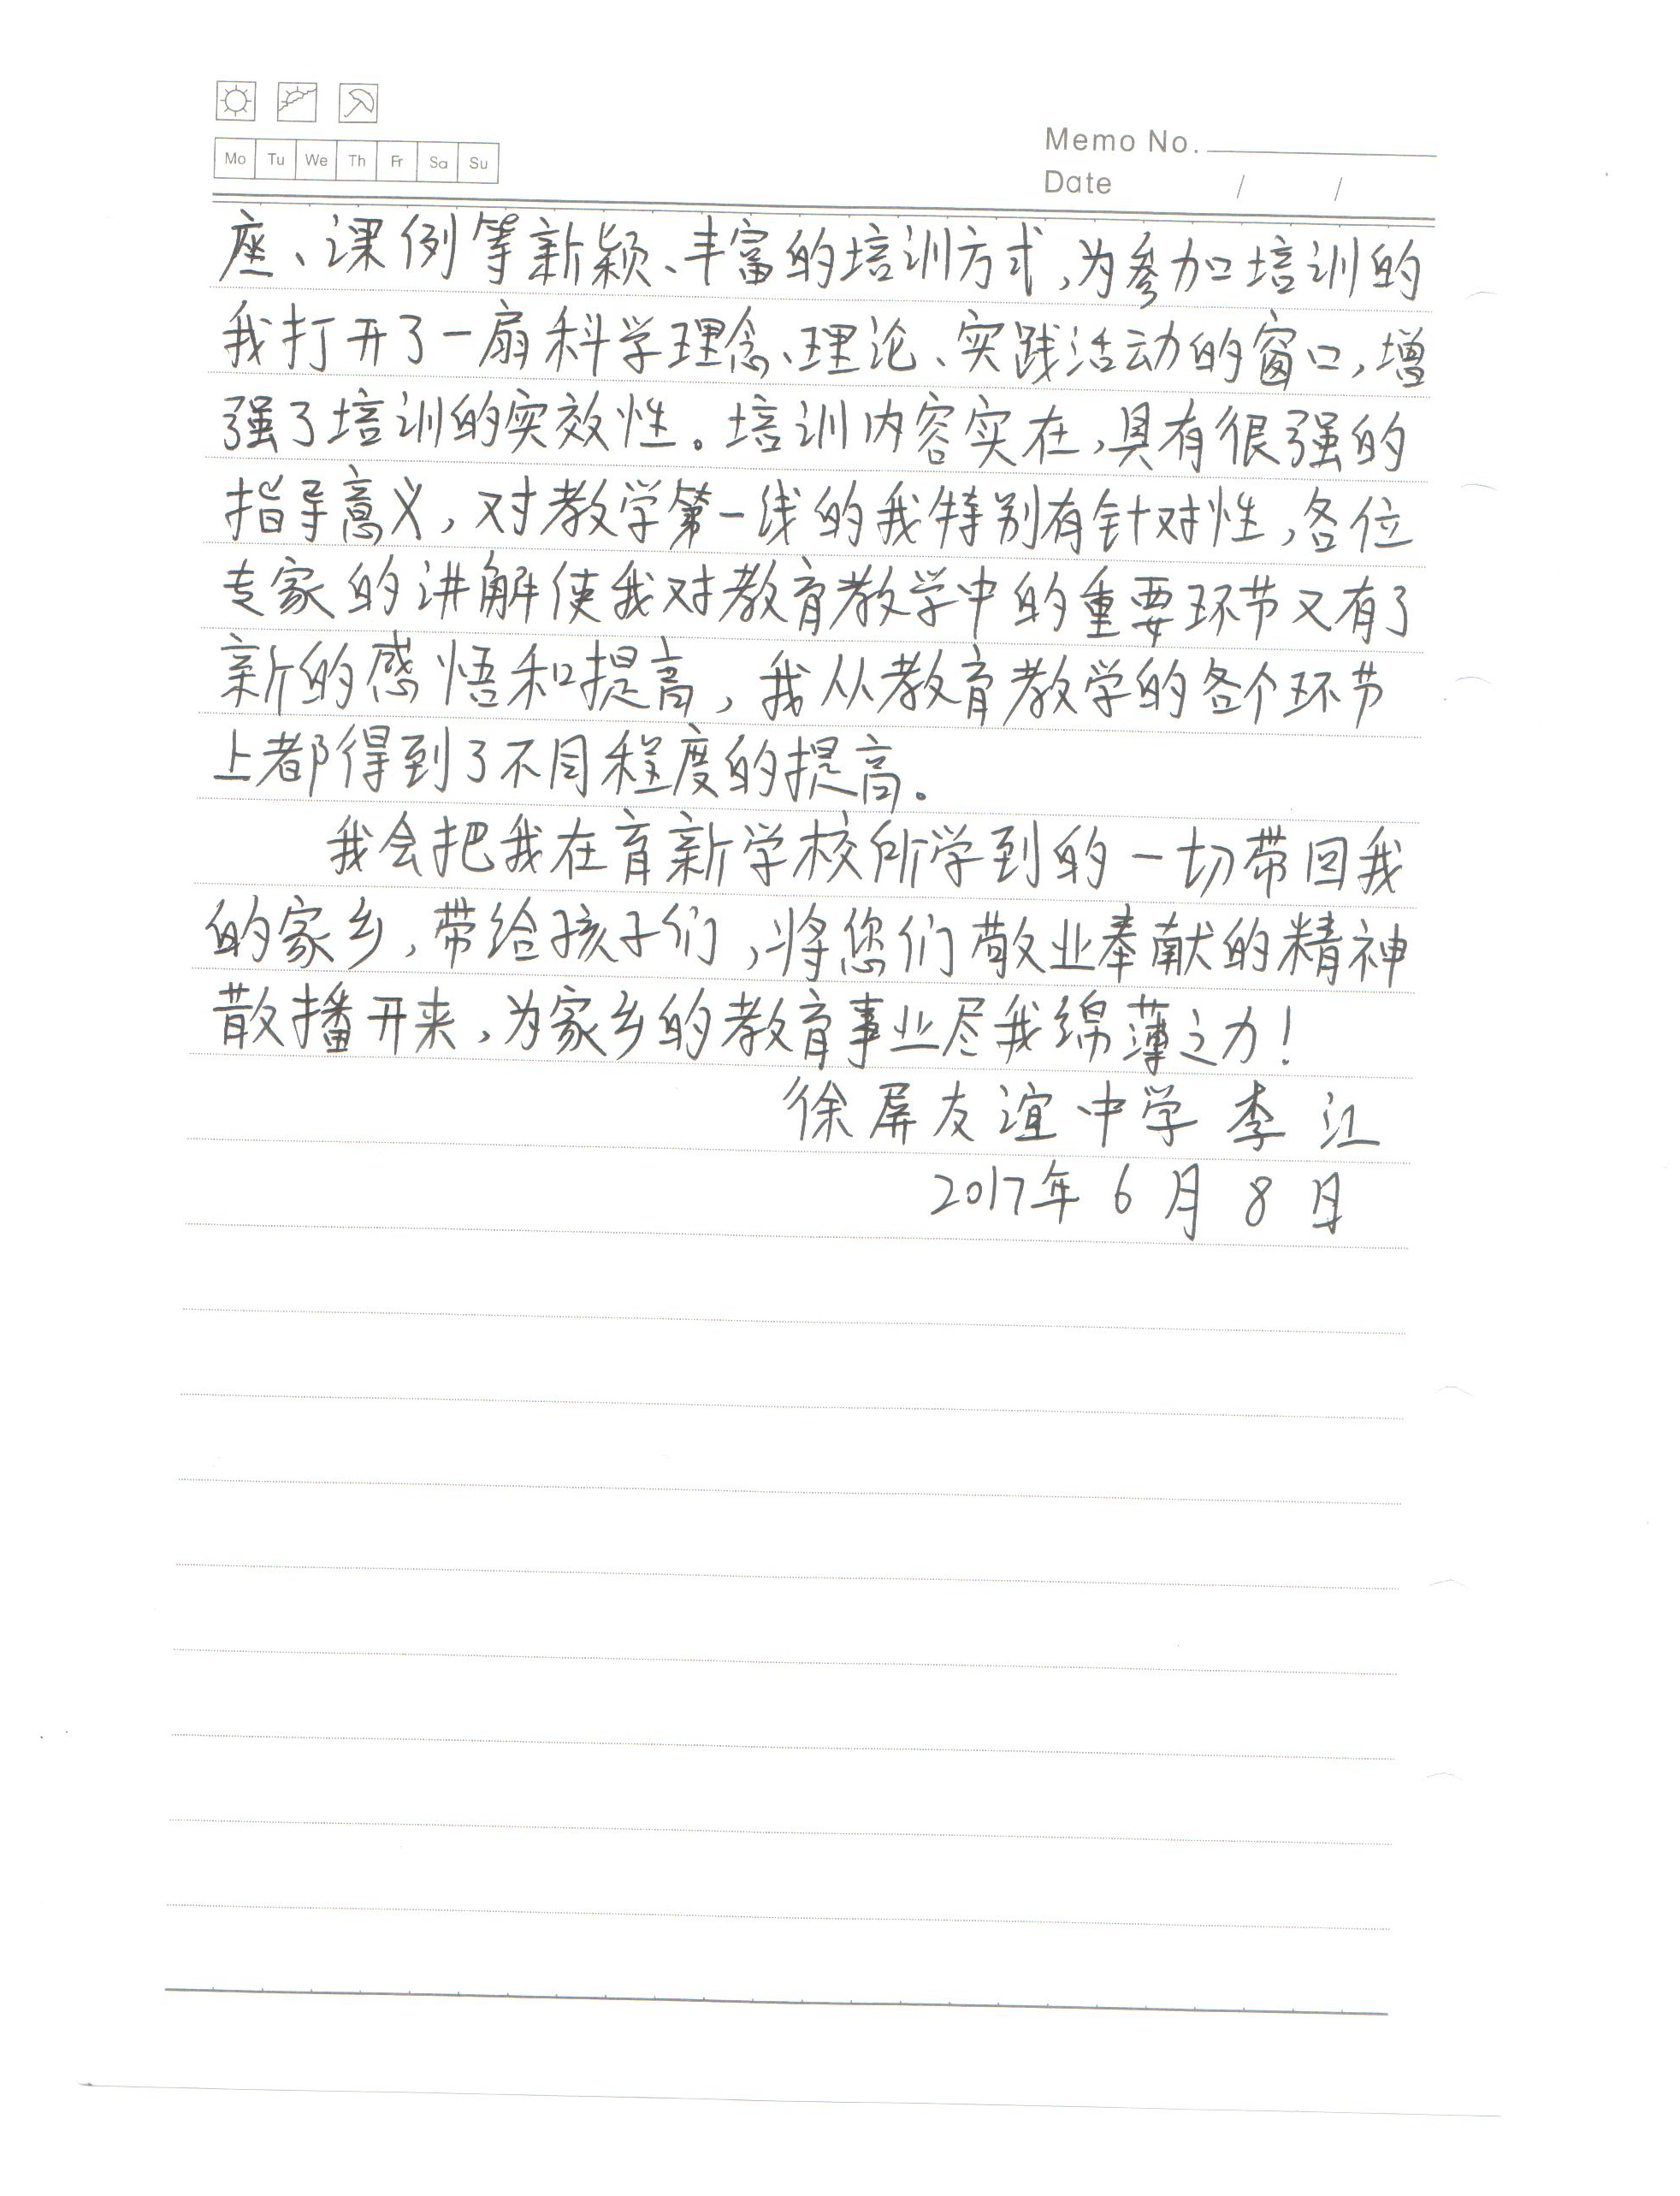 Mo Tu We Th Fr Sa Su
Memo No.
Date / /
座、课例等新颖、丰富的培训方式,为参加培训的
我打开了一扇科学理念、理论、实践活动的窗口,增
强了培训的实效性。培训内容实在,具有很强的
指导意义,对教学第一线的我特别有针对性,各位
专家的讲解使我对教育教学中的重要环节又有了
新的感悟和提高,我从教育教学的各个环节
上都得到了不同程度的提高。
我会把我在育新学校所学到的一切带回我
的家乡,带给孩子们,将您们敬业奉献的精神
散播开来,为家乡的教育事业尽我绵薄之力!
徐屏友谊中学 李江
2017年6月8日